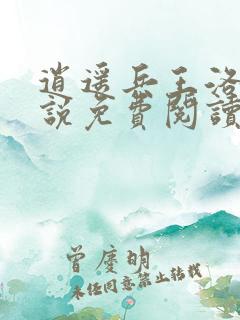 逍遥兵王洛
說免費閱讀
曾慶明
未任同意禁止转载